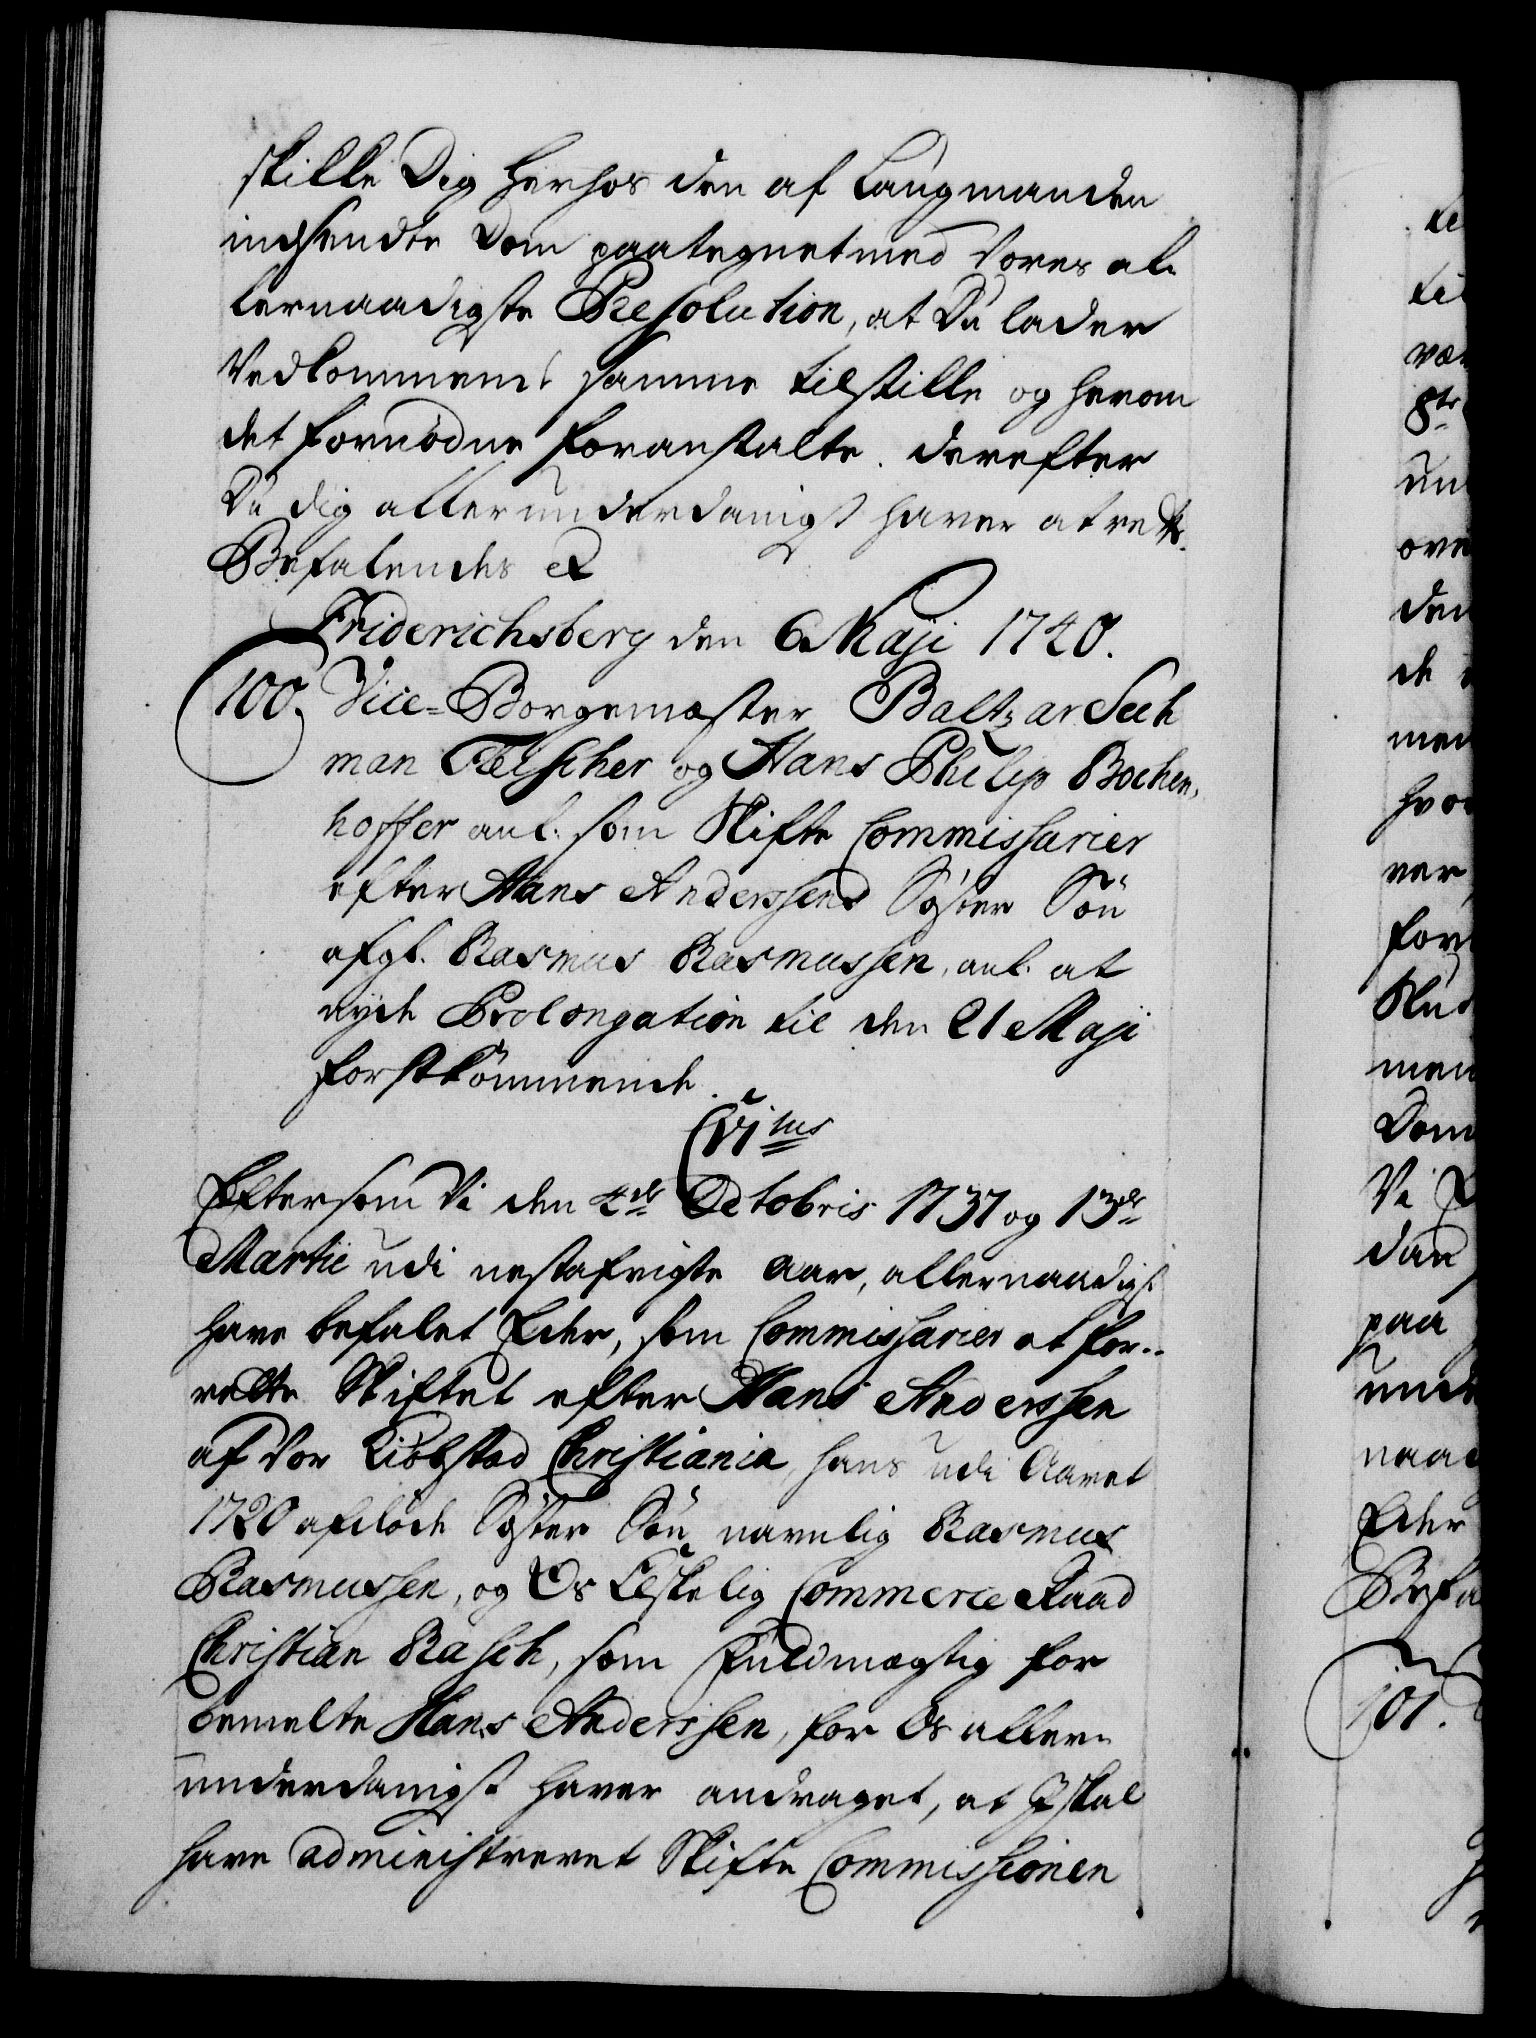 stille Dig herhos den af Laugmanden
indsendte Dom paategnet med Vores al-
lernaadigste Resolution, at Du lader
Vedkommende samme tilstille og herom
det fornødne foranstalte. derefter
Du dig allerunderdanigst haver at rette.
Befalendes &
Friderichsberg den 6 Maji 1740.
100. Vice-Borgemester Baltzar Sech
man Felscher og Hans Philip Bochen,
hoffer anl. som Skifte Commissarier
efter Hans Anderssens Søster Søn
afgl. Rasmus Rasmussen, anl. at
nyde Prolongation til den 21 Maji
førstkommende.
C. VI tus
Eftersom Vi den 4de Octobris 1737 og 13de
Martii udi nestafvigte aar, allernaadigst
have befalet Eder, som Commissarier at for-
rette Skiftet efter Hans Anderssen
af Vor Kiøbstad Christiania, hans udi Aaret
1720 afdøde Søster Søn navnlig Rasmus
Rasmussen, og Os Elskelig Commerce Raad
Christian Rasch, som Fuldmægtig for
bemelte Hans Anderssen, for Os aller-
underdanigst haver andraget, at I skal
have administreret Skifte Commissionen
te
til
8te
un
ove
den
de
men
hvo
ver
for
men
Dom
Vi
dan
paa
und
naad
Eder
Befa
101.